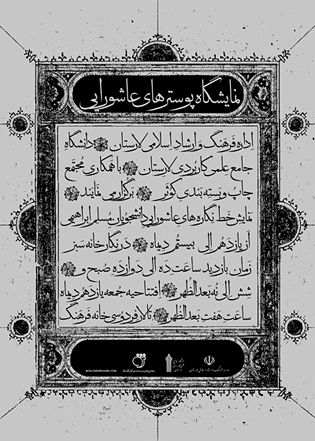 نمایشگاه پوسترهای عاشورایی
اداره فرهنگ و ارشاد اسلامی لارستان دانشگاه
جامع علمی کاربردی لارستان با همکاری مجتمع
چاپ و بسته بندی کوثر برگزار می نمایند
نمایش خط نگاره های عاشورایی دانشجویان مسلم ابراهیمی
از یازدهم الی بیستم دیماه در نگارخانه سبز
زمان بازدید ساعت ده الی دوازده صبح و
شش الی نه بعدالظهر افتتاحیه جمعه یازدهم دیماه
ساعت هفت بعدالظهر تالار فردوسی خانه فرهنگ